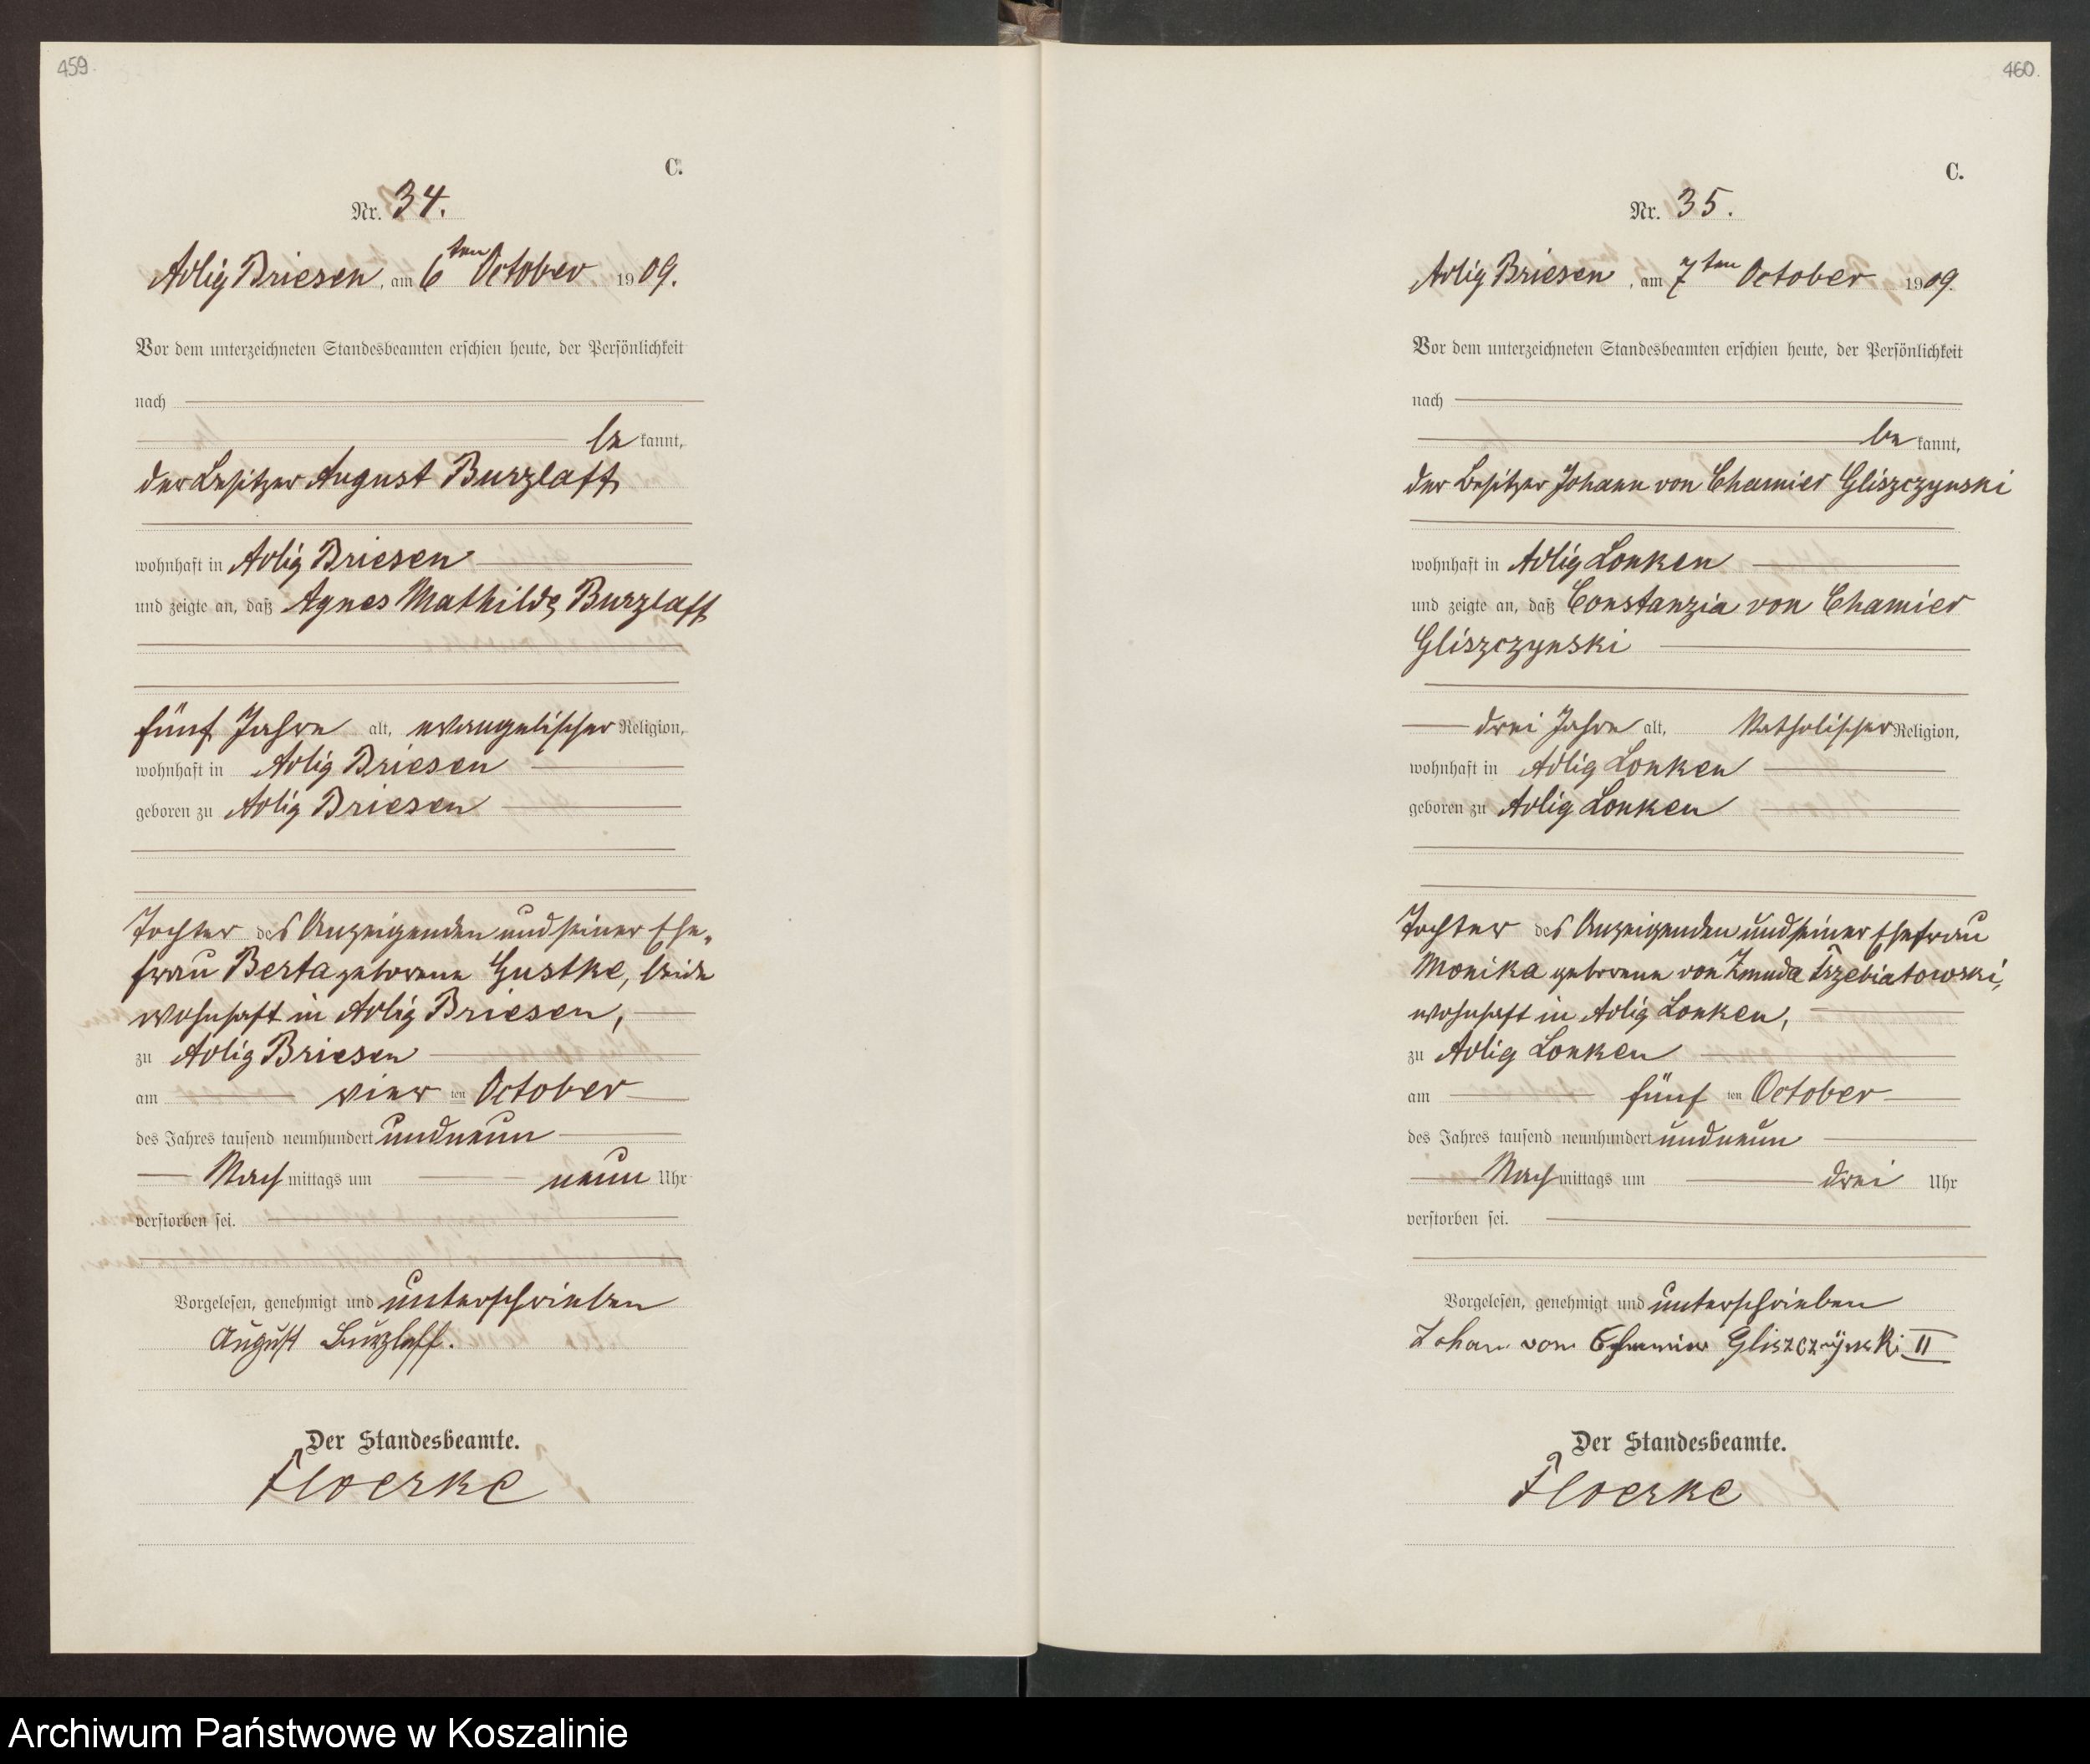 459.
C.
Nr. 34.
Adlig Briesen, am 6ten October 1909.
Vor dem unterzeichneten Standesbeamten erschien heute, der Persönlichkeit
nach
bekannt,
der Besitzer August Burzlaff
wohnhaft in Adlig Briesen
und zeigte an, daß Agnes Mathilde Burzlaff
fünf Jahre alt, evangelischer Religion,
wohnhaft in Adlig Briesen
geboren zu Adlig Briesen
Tochter des Anzeigenden und seiner Ehe-
frau Berta geborene Gustke, beide
wohnhaft in Adlig Briesen,
zu Adlig Briesen
am vier ten October
des Jahres tausend neunhundert undneun
Nachmittags um neun Uhr
verstorben sei.
Vorgelesen, genehmigt und unterschrieben
August Burzlaff.
Der Standesbeamte.
Floerke
460.
C.
Nr. 35.
Adlig Briesen, am 7ten October 1909.
Vor dem unterzeichneten Standesbeamten erschien heute, der Persönlichkeit
nach
bekannt,
der Besitzer Johann von Chamier Gliszczynski
wohnhaft in Adlig Lonken
und zeigte an, daß Constanzia von Chamier
Gliszczynski
drei Jahre alt, Katholischer Religion,
wohnhaft in Adlig Lonken
geboren zu Adlig Lonken
Tochter des Anzeigenden und seiner Ehefrau
Monika geborene von Zmuda Trzebiatowski,
wohnhaft in Adlig Lonken,
zu Adlig Lonken
am fünf ten October
des Jahres tausend neunhundert undneun
Nachmittags um drei Uhr
verstorben sei.
Vorgelesen, genehmigt und unterschrieben
Johan von Chamier Gliszczynski II
Der Standesbeamte.
Floerke
Archiwum Państwowe w Koszalinie